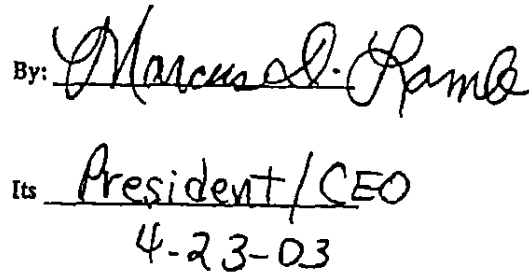 By: Marcus D. Lamb
Its President/CEO
4-23-03